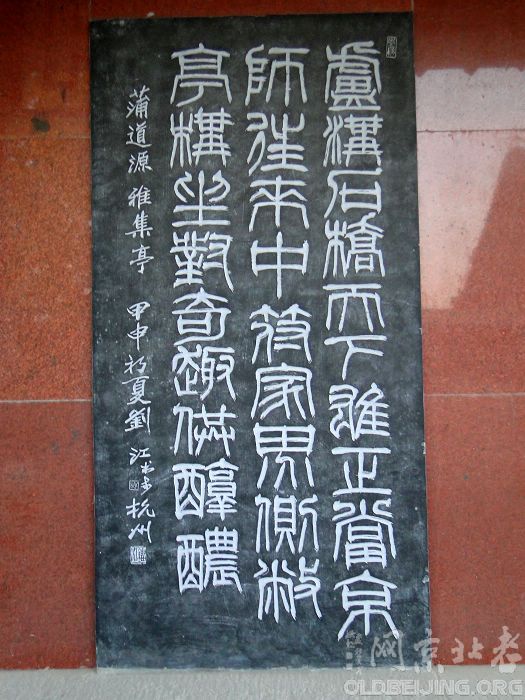 盧溝石橋天下雄正當京
師往來中符家界側敞
亭構坐對奇趣供醇醲
蒲道源 雅集亭 甲申初夏劉江书於杭州
老北京网
OLDBEIJING.ORG